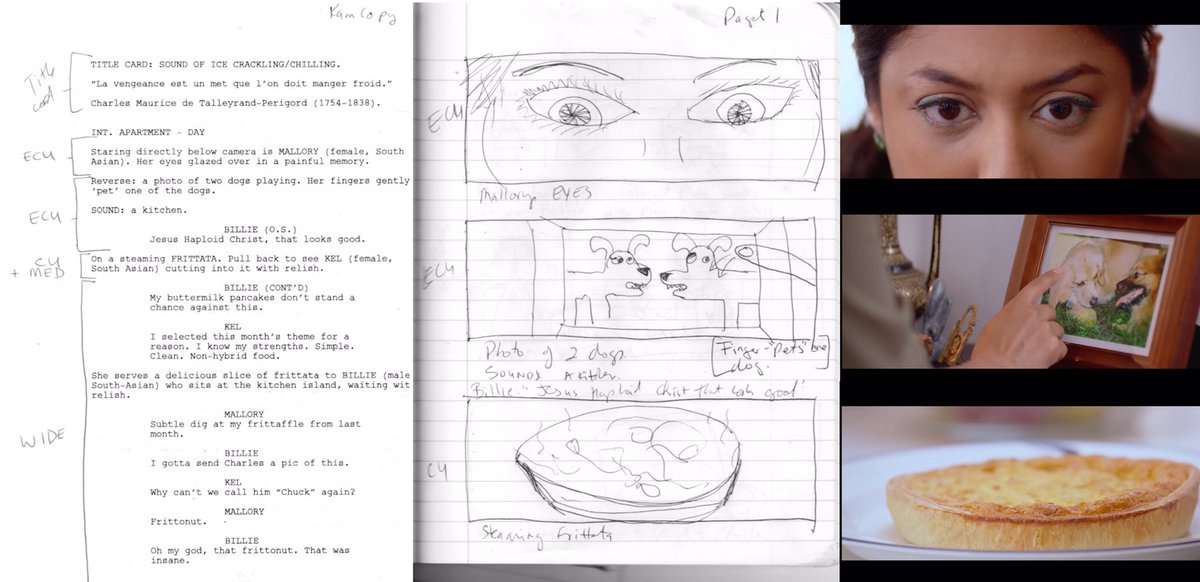 Kam Copy
TITLE CARD: SOUND OF ICE CRACKLING/CHILLING.
Title
card
“La vengeance est un met que l’on doit manger froid.”
Charles Maurice de Talleyrand-Perigord (1754-1838).
INT. APARTMENT - DAY
ECU
Staring directly below camera is MALLORY (female, South
Asian). Her eyes glazed over in a painful memory.
Reverse: a photo of two dogs playing. Her fingers gently
‘pet’ one of the dogs.
ECU
SOUND: a kitchen.
BILLIE (O.S.)
Jesus Haploid Christ, that looks good.
CU
+ MED
On a steaming FRITTATA. Pull back to see KEL (female,
South Asian) cutting into it with relish.
BILLIE (CONT’D)
My buttermilk pancakes don’t stand a
chance against this.
KEL
I selected this month’s theme for a
reason. I know my strengths. Simple.
Clean. Non-hybrid food.
She serves a delicious slice of frittata to BILLIE (male
South-Asian) who sits at the kitchen island, waiting wit
relish.
WIDE
MALLORY
Subtle dig at my frittaffle from last
month.
BILLIE
I gotta send Charles a pic of this.
KEL
Why can’t we call him “Chuck” again?
MALLORY
Frittonut.
BILLIE
Oh my god, that frittonut. That was
insane.
Page 1
ECU
Mallory EYES
ECU
Photo of 2 dogs
Sounds A kitchen.
Finger "Pets" one
dog.
Billie "Jesus Haploid Christ that looks good'
CU
Steaming Frittata